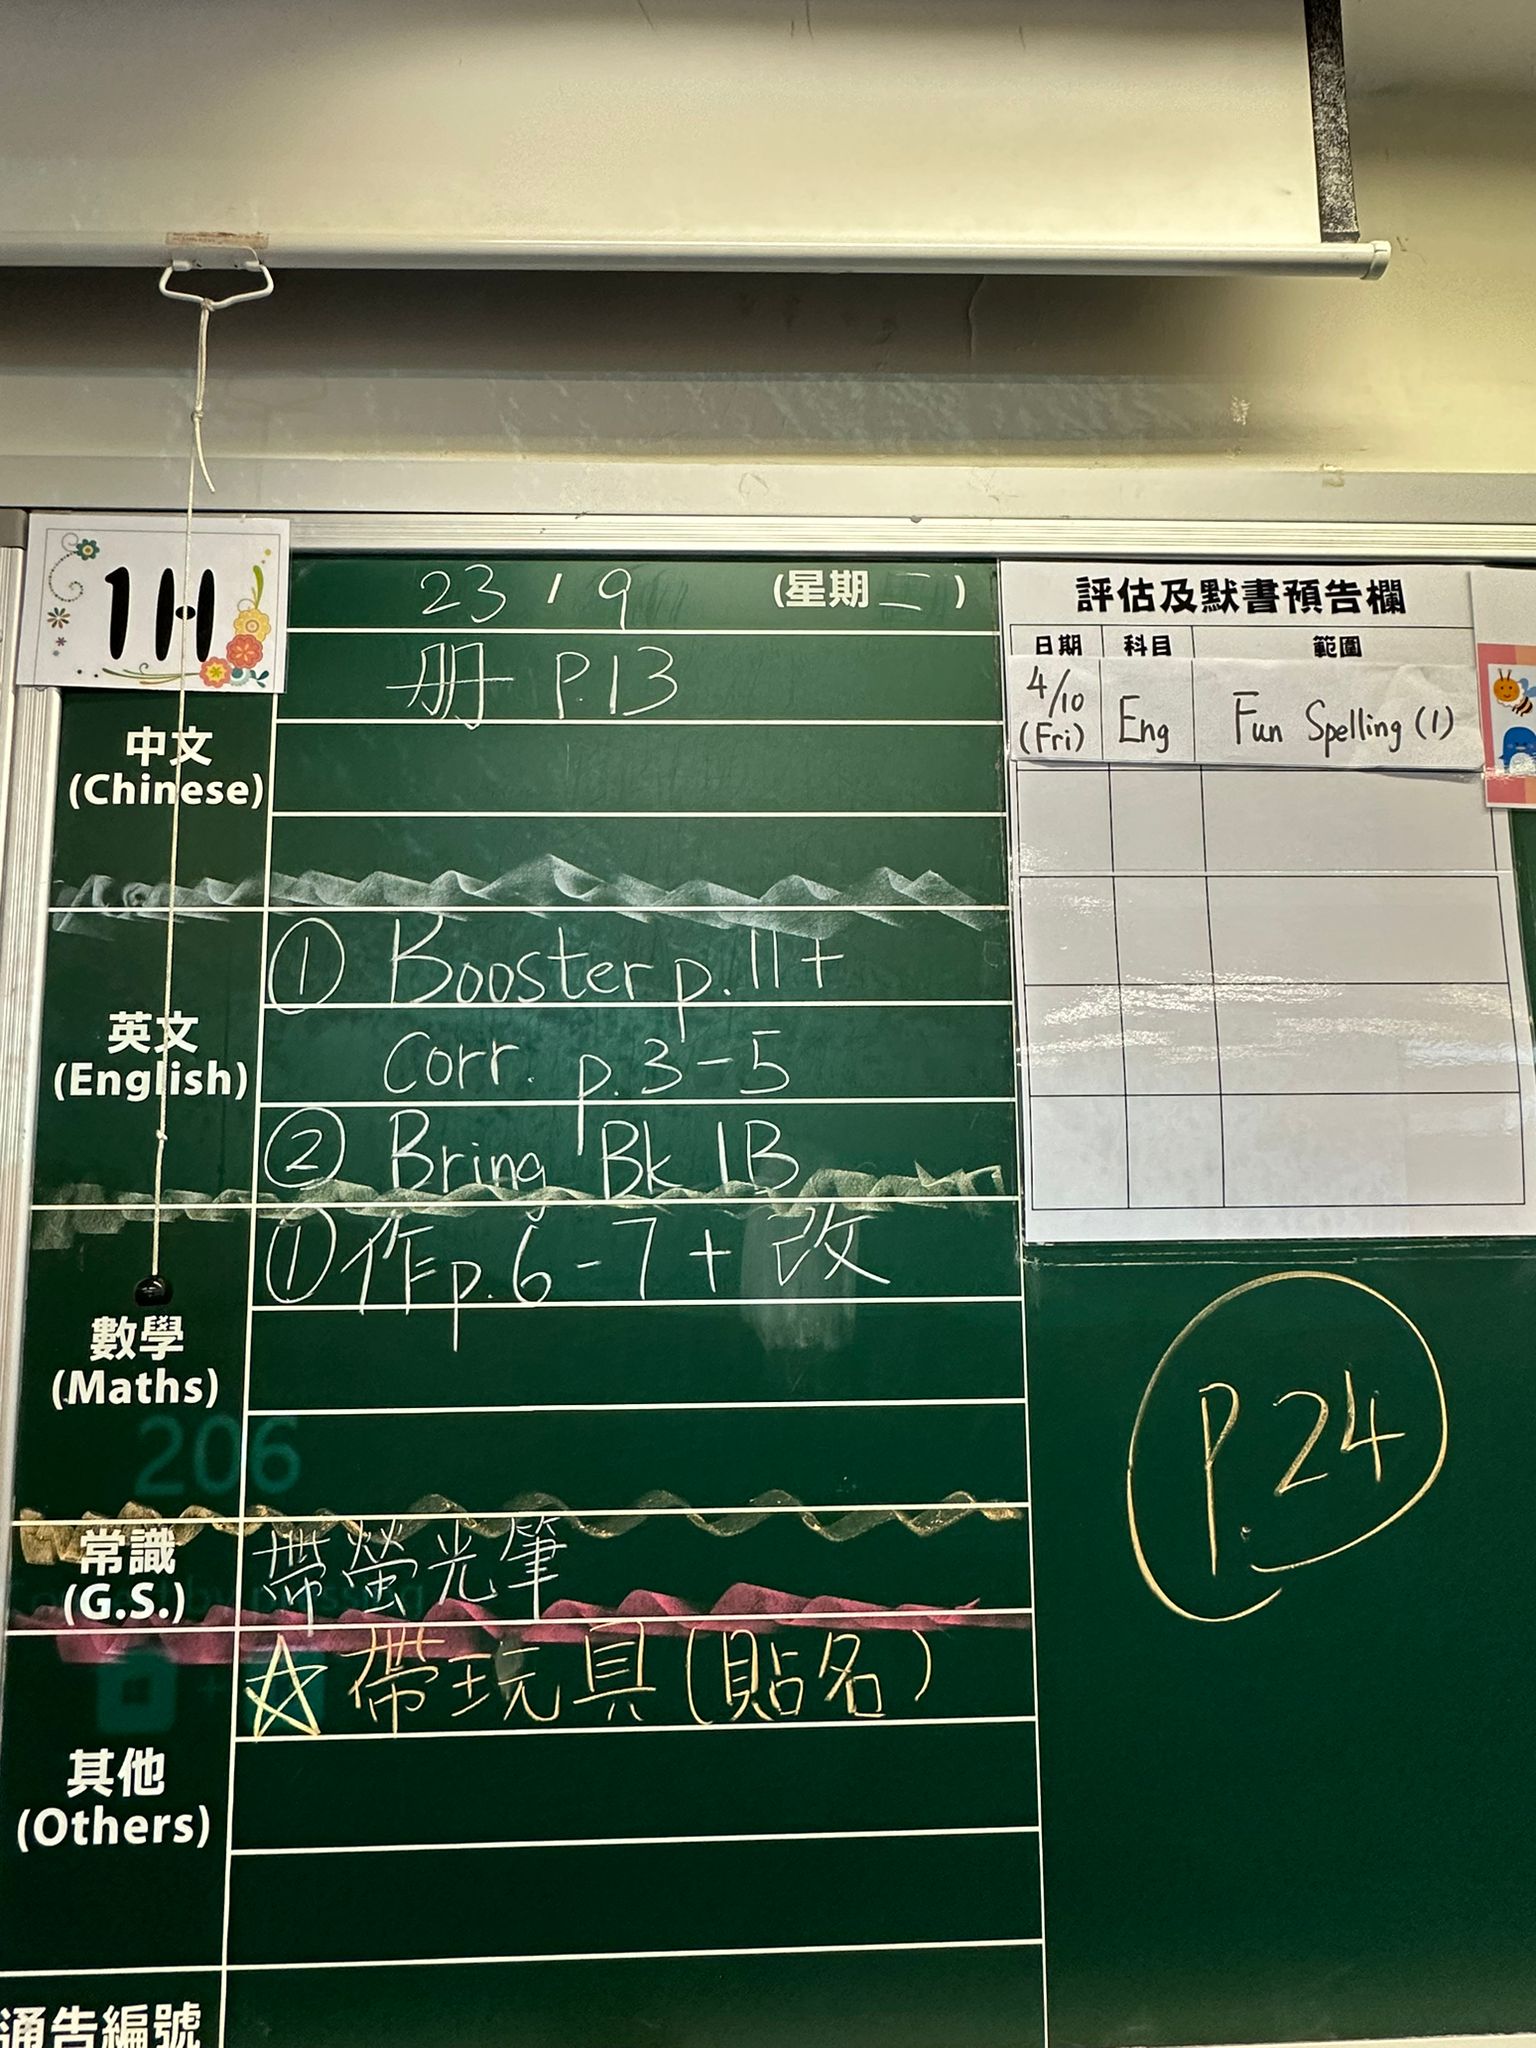 1H
23/9 (星期二)
中文
(Chinese)
册 P.13
英文
(English)
① Booster p.11+
corr. p.3-5
② Bring Bk 1B
數學
(Maths)
① 作p.6-7+改
206
常識
(G.S.)
帶螢光筆
其他
(Others)
☆ 帶玩具(貼名)
通告編號
評估及默書預告欄
日期 科目 範圍
4/10 (Fri) Eng Fun Spelling (1)
P.24